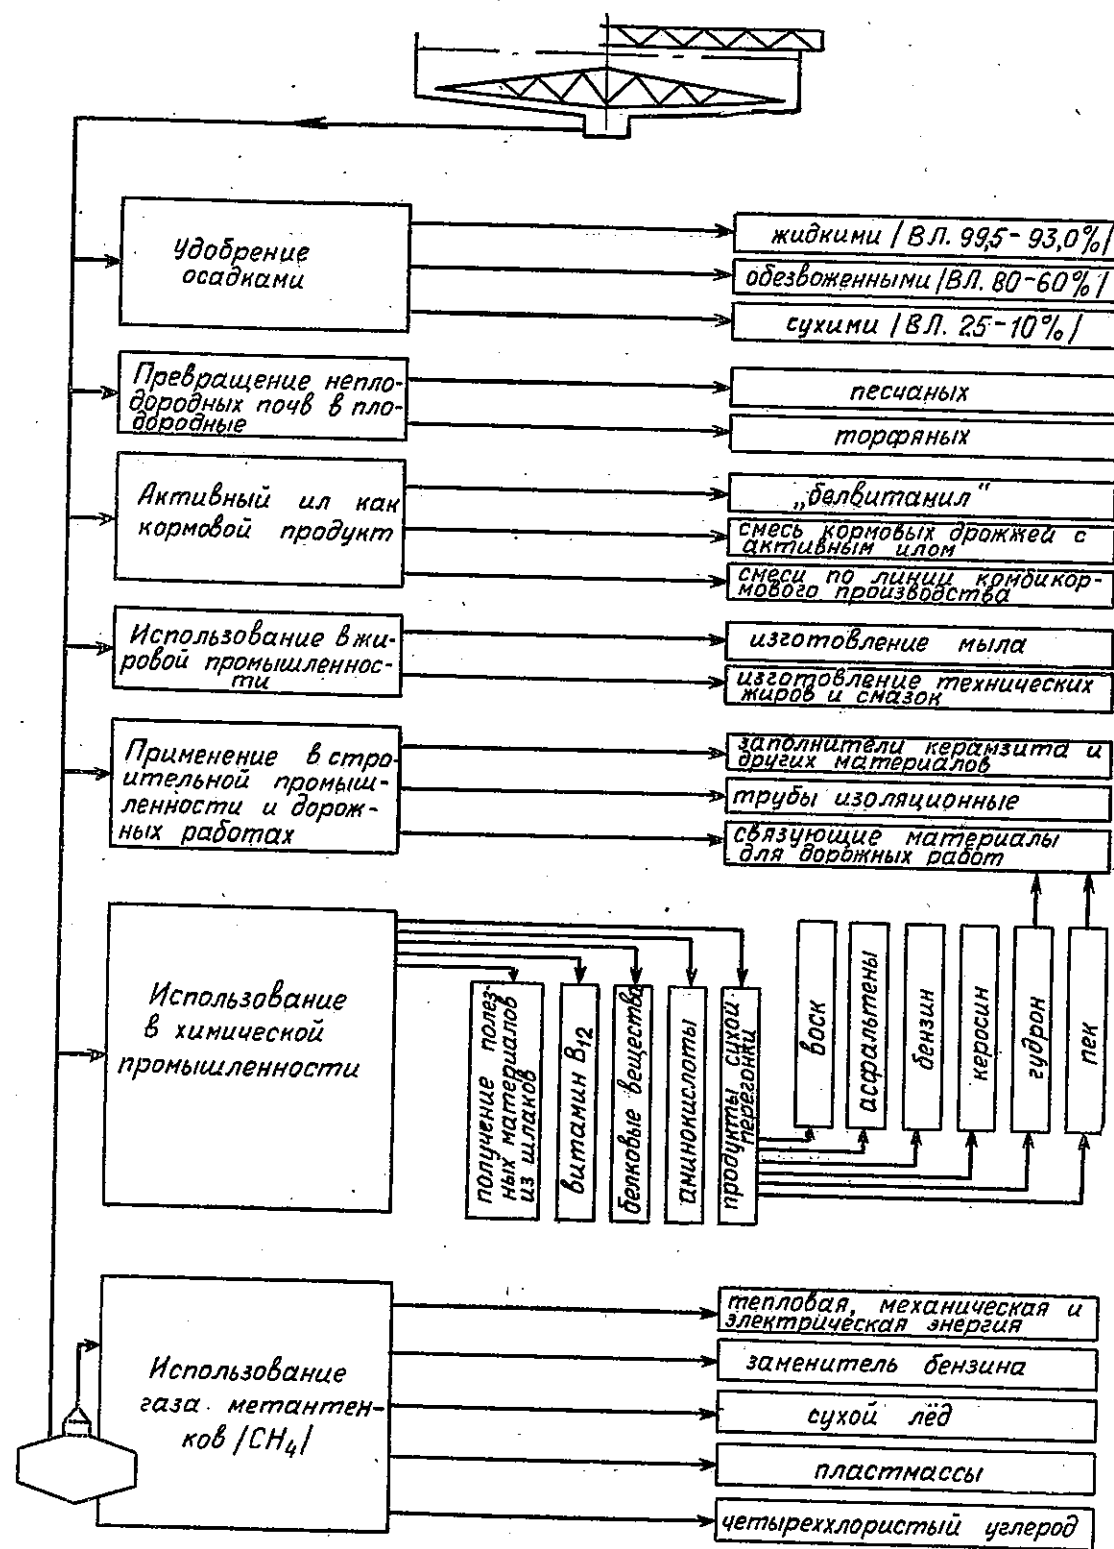 Удобрение
осадками
жидкими /ВЛ. 99,5-93,0%/
обезвоженными /ВЛ. 80-60%/
сухими /ВЛ. 25-10%/
Превращение непло-
дородных почв в пло-
дородные
песчаных
торфяных
Активный ил как
кормовой продукт
„белвитанил"
смесь кормовых дрожжей с
активным илом
смеси по линии комбикор-
мового производства
Использование в жи-
ровой промышленнос-
ти
изготовление мыла
изготовление технических
жиров и смазок
Применение в стро-
ительной промыш-
ленности и дорож-
ных работах
заполнители керамзита и
других материалов
трубы изоляционные
связующие материалы
для дорожных работ
Использование
в химической
промышленности
получение полез-
ных материалов
из шлаков
витамин B12
белковые вещества
аминокислоты
продукты сухой
перегонки
воск
асфальтены
бензин
керосин
гудрон
пек
Использование
газа метантен-
ков /CH4/
тепловая, механическая и
электрическая энергия
заменитель бензина
сухой лёд
пластмассы
четыреххлористый углерод